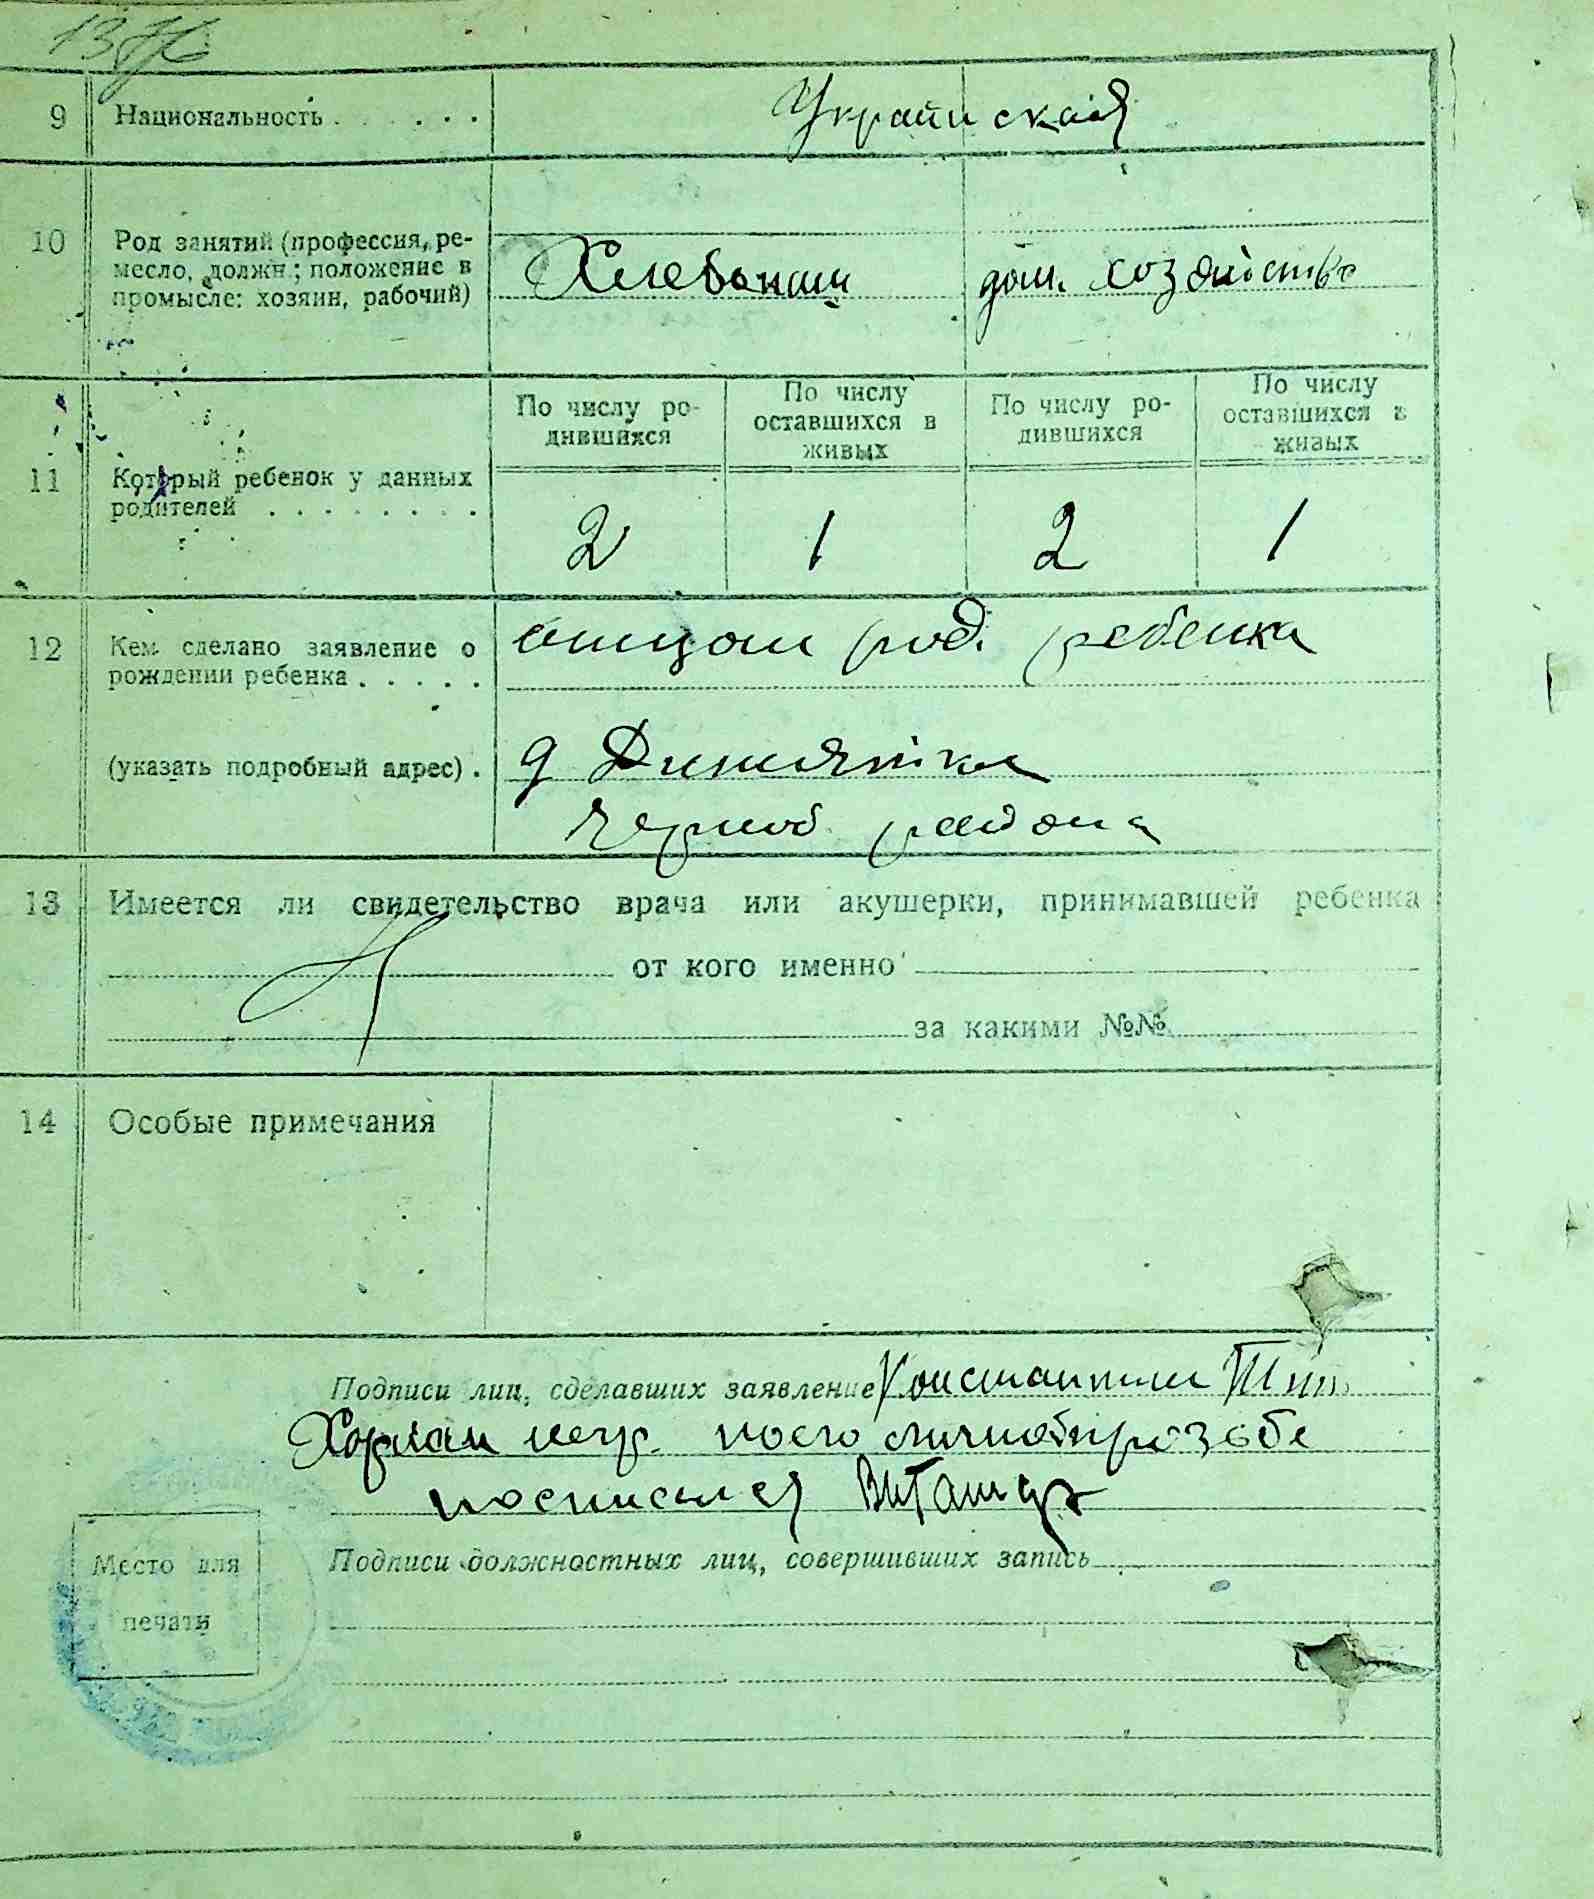 9 Национальность . . . . . . Украинская
10 Род занятий (профессия, ре-
месло, должн.; положение в
промысле: хозяин, рабочий)
Хлебопаш дом. хозяйство
По числу ро-
дившихся
По числу
оставшихся в
живых
По числу ро-
дившихся
По числу
оставшихся в
живых
11 Который ребенок у данных
родителей . . . . . . . .
2 1 2 1
12 Кем сделано заявление о
рождении ребенка . . . . .
отцом род. ребенка
(указать подробный адрес) .
д
Черноб. района
13 Имеется ли свидетельство врача или акушерки, принимавшей ребенка
от кого именно
за какими №№
14 Особые примечания
Подписи лиц, сделавших заявление Константин
негр. по его личной прозьбе
росписался
Место для
печати
Подписи должностных лиц, совершивших запись